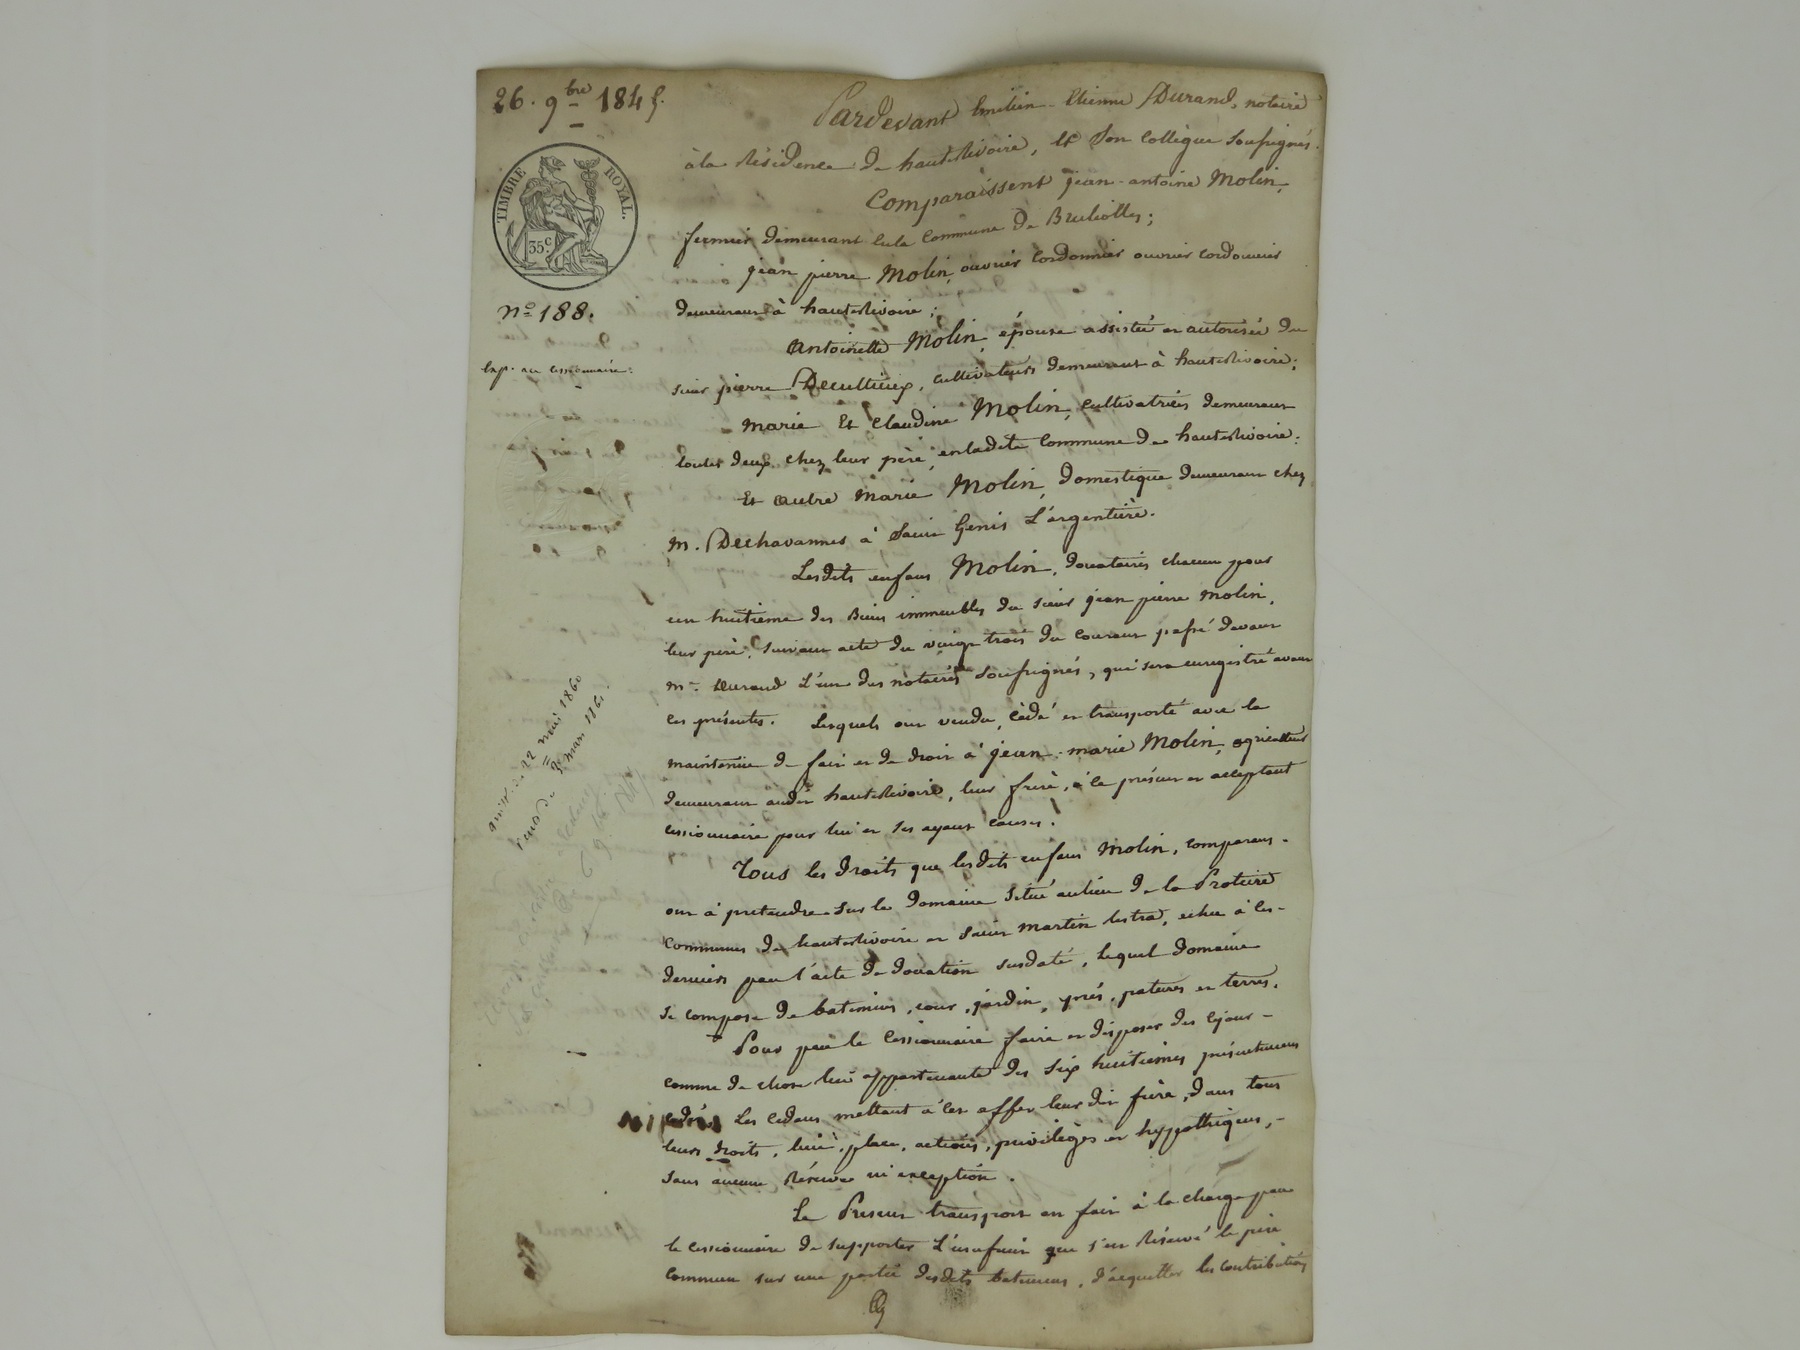 26. 9bre 1845.
TIMBRE ROYAL.
35c.
no 188.
Exp. au cessionnaire:
Pardevant Emilien Etienne Durand, notaire
à la Résidence de hauteRivoire, et Son collègue Soussignés.
Comparaissent jean-antoine Molin,
fermier demeurant en la Commune de Brulioles;
jean pierre Molin, ouvrier Cordonnier ouvrier cordonnier
demeurant à hauteRivoire;
Antoinette Molin, épouse assistée et autorisée du
sieur pierre Decultieux, cultivateurs demeurant à hauteRivoire;
Marie Et Claudine Molin, cultivatrices demeurant
toutes deux chez leur père, en ladite Commune de hauteRivoire;
Et autre Marie Molin, domestique demeurant chez
M. Dechavannes à Saint Genis L'argentière.
Lesdits enfans Molin, donataires chacun pour
un huitième des Biens immeubles du sieur jean pierre Molin,
leur père, suivant acte du vingt trois du courant passé devant
me Durand L'un des notaires soussignés, qui sera enregistré avant
ces présentes. Lesquels ont vendu, cédé et transporté avec la
maintenue de fait et de droit à jean-marie Molin, agriculteur
demeurant audit hauteRivoire, leur frère, à ce présent et acceptant
cessionnaire pour lui et ses ayant causes.
Tous les droits que lesdits enfans Molin, comparans
ont à pretendre sur le domaine situé au lieu de la
Communes de hauteRivoire et Saint Martin lestra, echu à ces
derniers par l'acte de donation susdaté, lequel domaine
se compose de batimens, cour, jardin, prés, patures et terres.
Pour par le Cessionnaire faire et disposer dès cejour
comme de chose lui appartenante des six huitiemes présentement
cédés. Les cédans mettant à cet effet leur dit frère, dans tous
leurs droits, lieu, place, actions, privilèges et hypothèques,
sans aucune Réserve ni exception.
Le Présent transport est fait à la charge par
le cessionnaire de supporter L'usufruit que s'est Réservé le père
commun sur une partie desdits batimens, d'acquitter les contributions
22 mai 1860